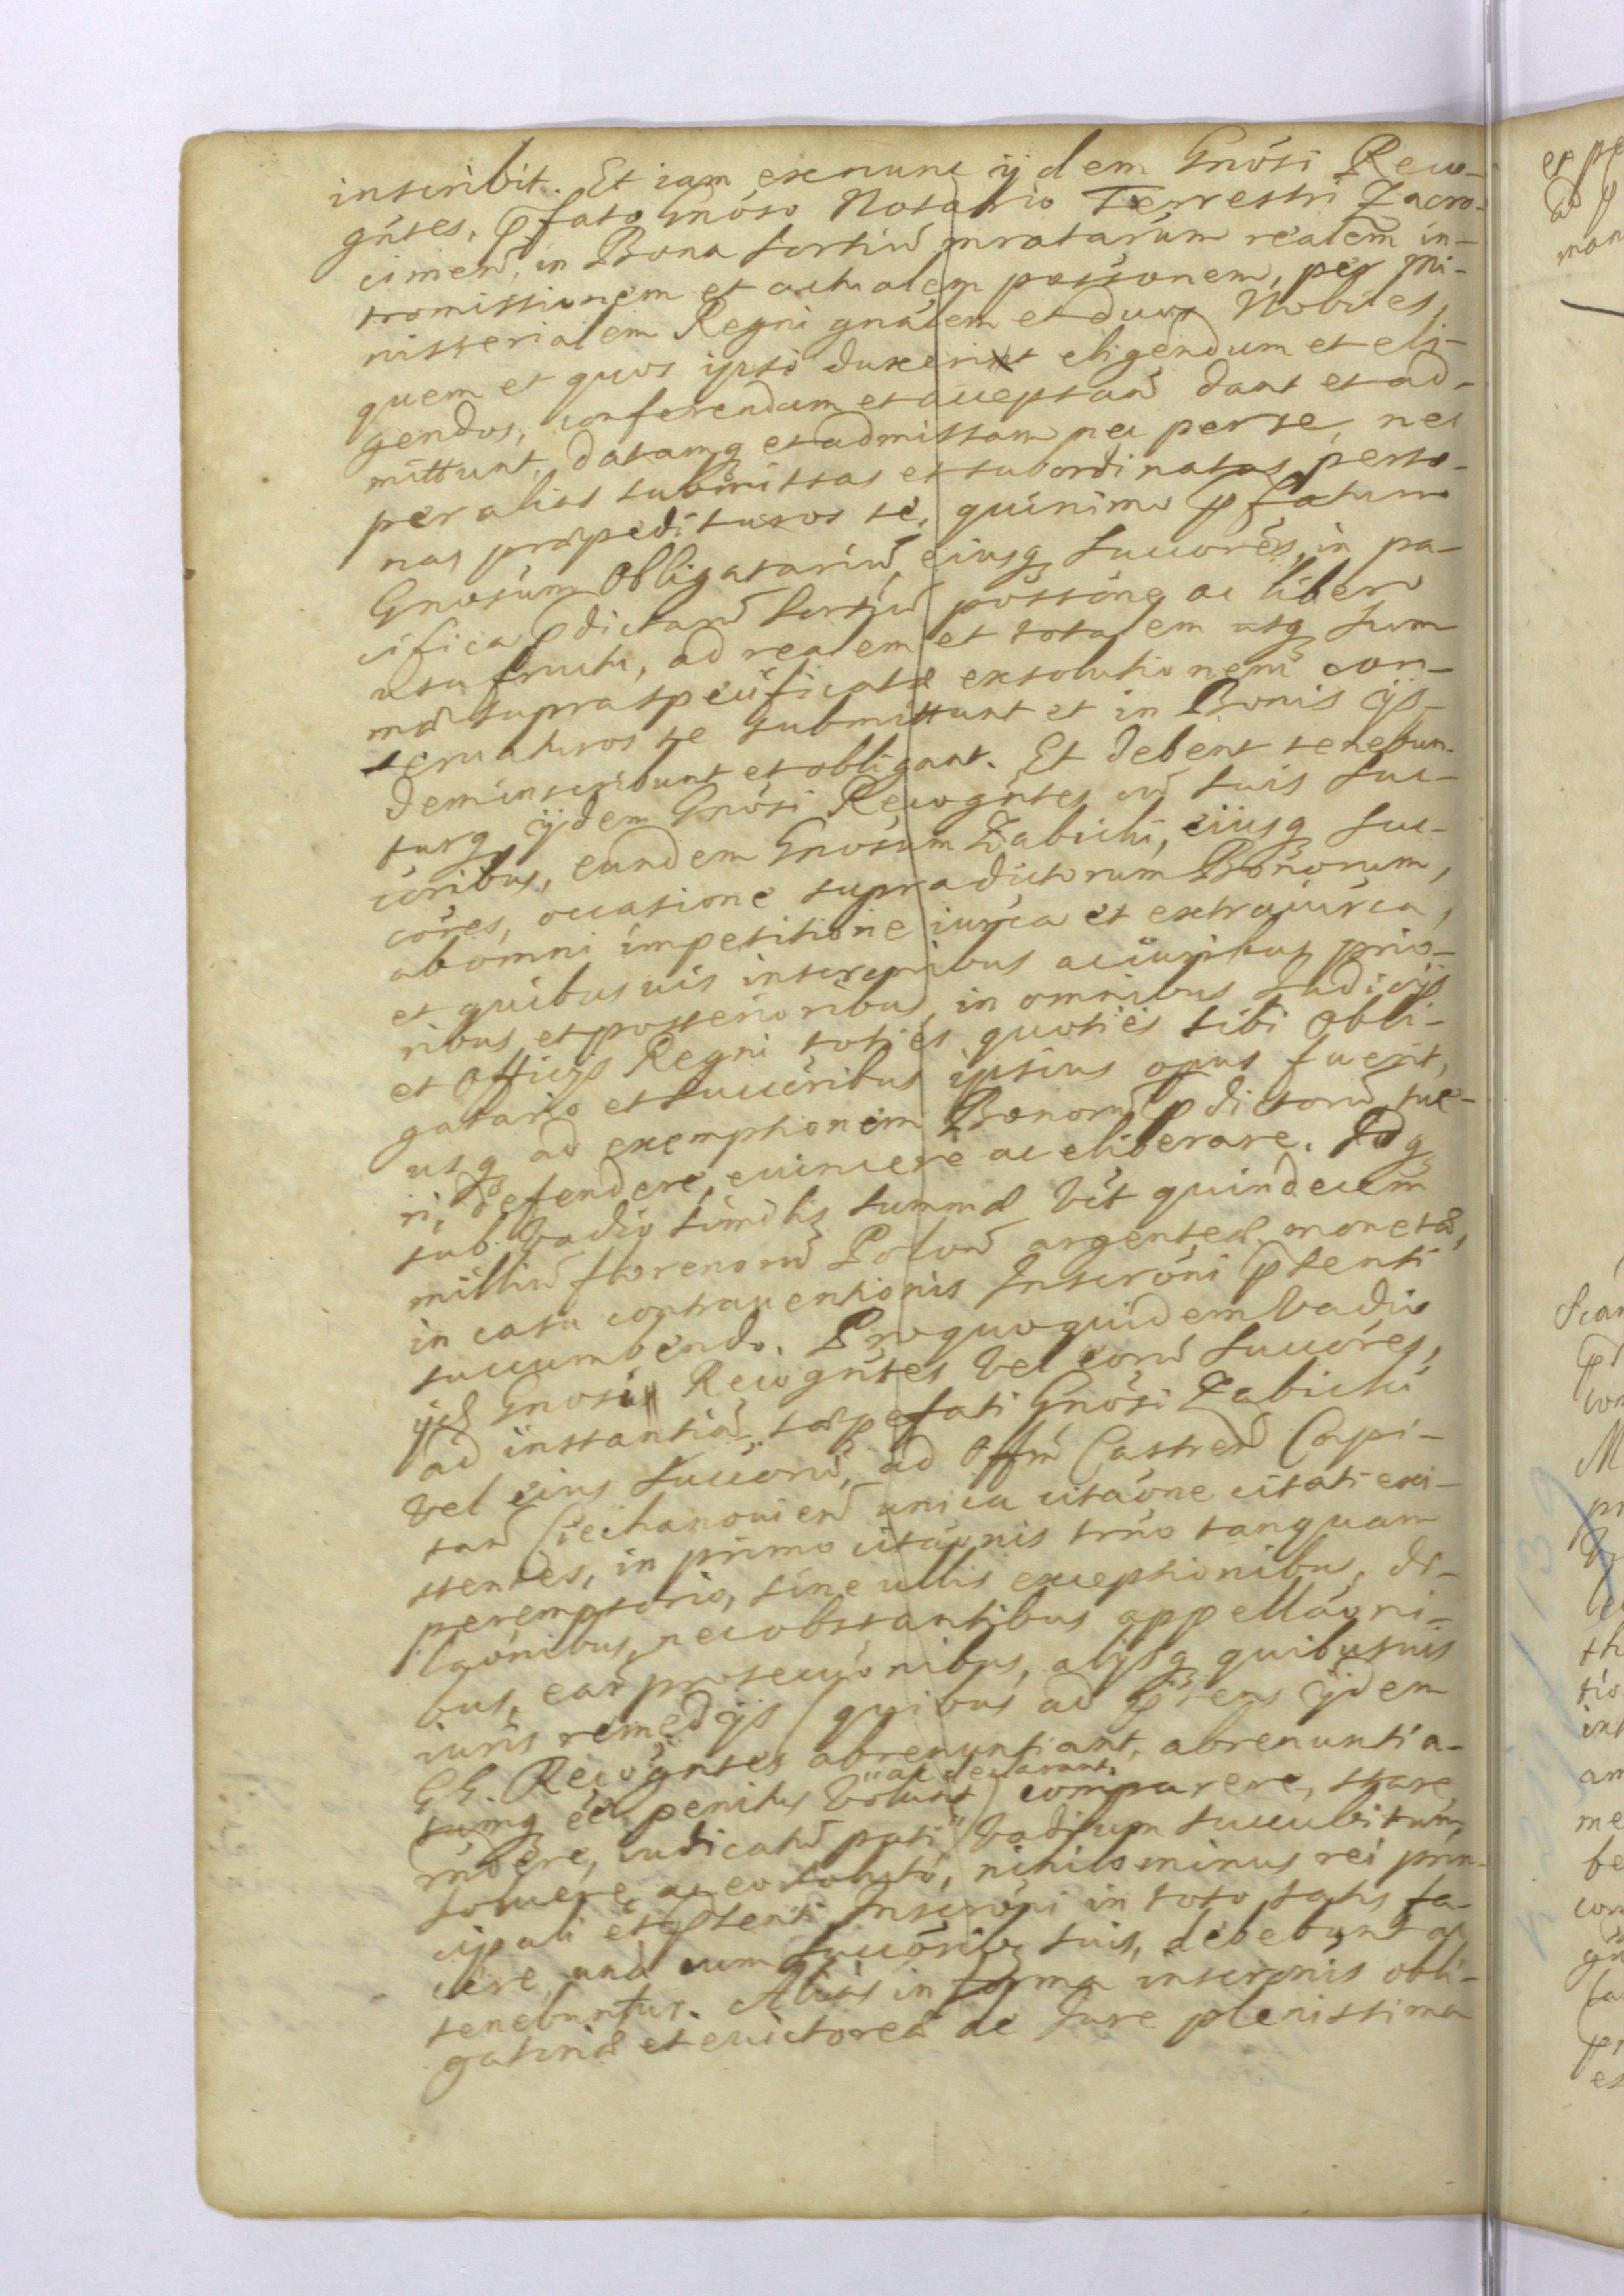 inscribit. Et iam exnunc ijdem Gnosi Reco-
gntes, pfato Gnoso Notario Terrestri Zacro-
cimen, in Bona sortiu mratarum realem in-
tromissionem et actualem possonem, per Mi-
nisterialem Regni gnalem et duos Nobiles,
quem et quos ipsi duxerint eligendum et eli-
gendos, conferendam et acceptan dant et ad-
mittunt, datamq et admissam nec per se, nec
per alias submissas et subordinatas perso-
nas praepedituros se, quinimo pfatum
Gnosum Obligatariu, eiusq succores, in pa-
cifica pdictaru sortiu possone ac libero
usufructu, ad realem et totalem usq sum
mae supraspecificatae exsolutionem con-
seruaturos se submittunt et in Bonis ijs-
dem inscribunt et obligant. Et debent tenebun-
turq ijdem Gnosi Recogntes cu suis suc-
coribus, eundem Gnosum Zabicki, eiusq suc-
cores, occasione supradictorum Bonorum,
ab omni impetitione iurica et extraiurica,
et quibusuis inscrenibus ac iuribus prio-
ribus et posterioribus, in omnibus Iudicijs
et Officijs Regni toties quoties sibi Obli-
gatario et succoribus ipsius opus fuerit,
usq ad exemptionem Bonoru pdictoru tue-
ri, defendere, euincere ac eliberare. Idq
sub vadio similis summae vt quindecem
milliu florenoru Polon argenteae monetae,
in casu contrauentionis Inscroni pnti
succumbendo. Pro quoquidem vadio
ijd Gnosi Recogntes vel eoru succores,
ad instantia saepefati Gnosi Zabicki
vel eius succoru, ad Offm Castren Capi-
tan Ciechanouien unica citaone citati exi-
stentes, in primo citaonis trno tanquam
peremptorio, sine ullis exceptionibus, di-
laonibus, nec obstantibus appellaoni-
bus, ear prosecuonibus, alijsq quibusuis
iuris remedijs (quibus ad pns ijdem
GG. Recogntes abrenuntiant, abrenuntia-
tumq ee penitus volunt ac declarant) comparere, stare,
rndere, iudicatu pati, vadium succubitum
soluere, ac eo soluto, nihilominus rei prin-
cipali et pnti Inscroni in toto satis fa-
cere, una cum succoribs suis, debebunt ac
tenebuntur. Alias in forma inscronis obli-
gatoriae et euictoreae de Iure plenissima